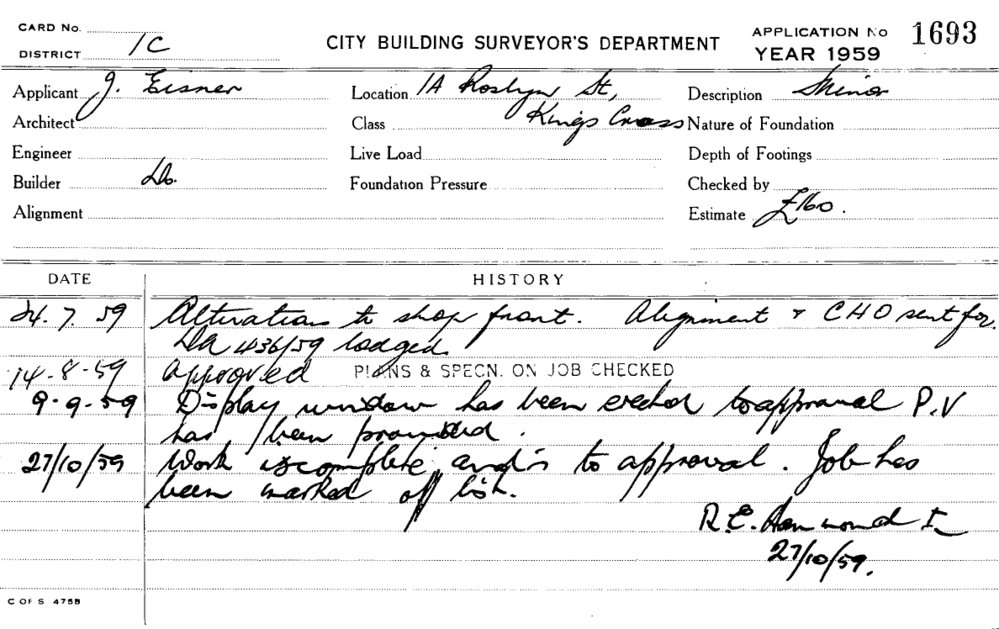 CARD No.
DISTRICT 1C
CITY BUILDING SURVEYOR'S DEPARTMENT
APPLICATION No 1693
YEAR 1959
Applicant J. Eisner
Location 1A Roslyn St,
Kings Cross
Description Minor
Architect
Class
Nature of Foundation
Engineer
Live Load
Depth of Footings
Builder Do.
Foundation Pressure
Checked by
Alignment
Estimate £160.
DATE HISTORY
24.7.59 Alterations to shop front. Alignment & CHO sent for.
DA 436/59 lodged.
14-8-59 Approved PLANS & SPECN. ON JOB CHECKED
9-9-59 Display window has been erected to approval P.V
has been provided.
27/10/59 Work is complete and is to approval. Job has
been marked off list.
R.E. Hammond I
27/10/59.
C OF S 475B